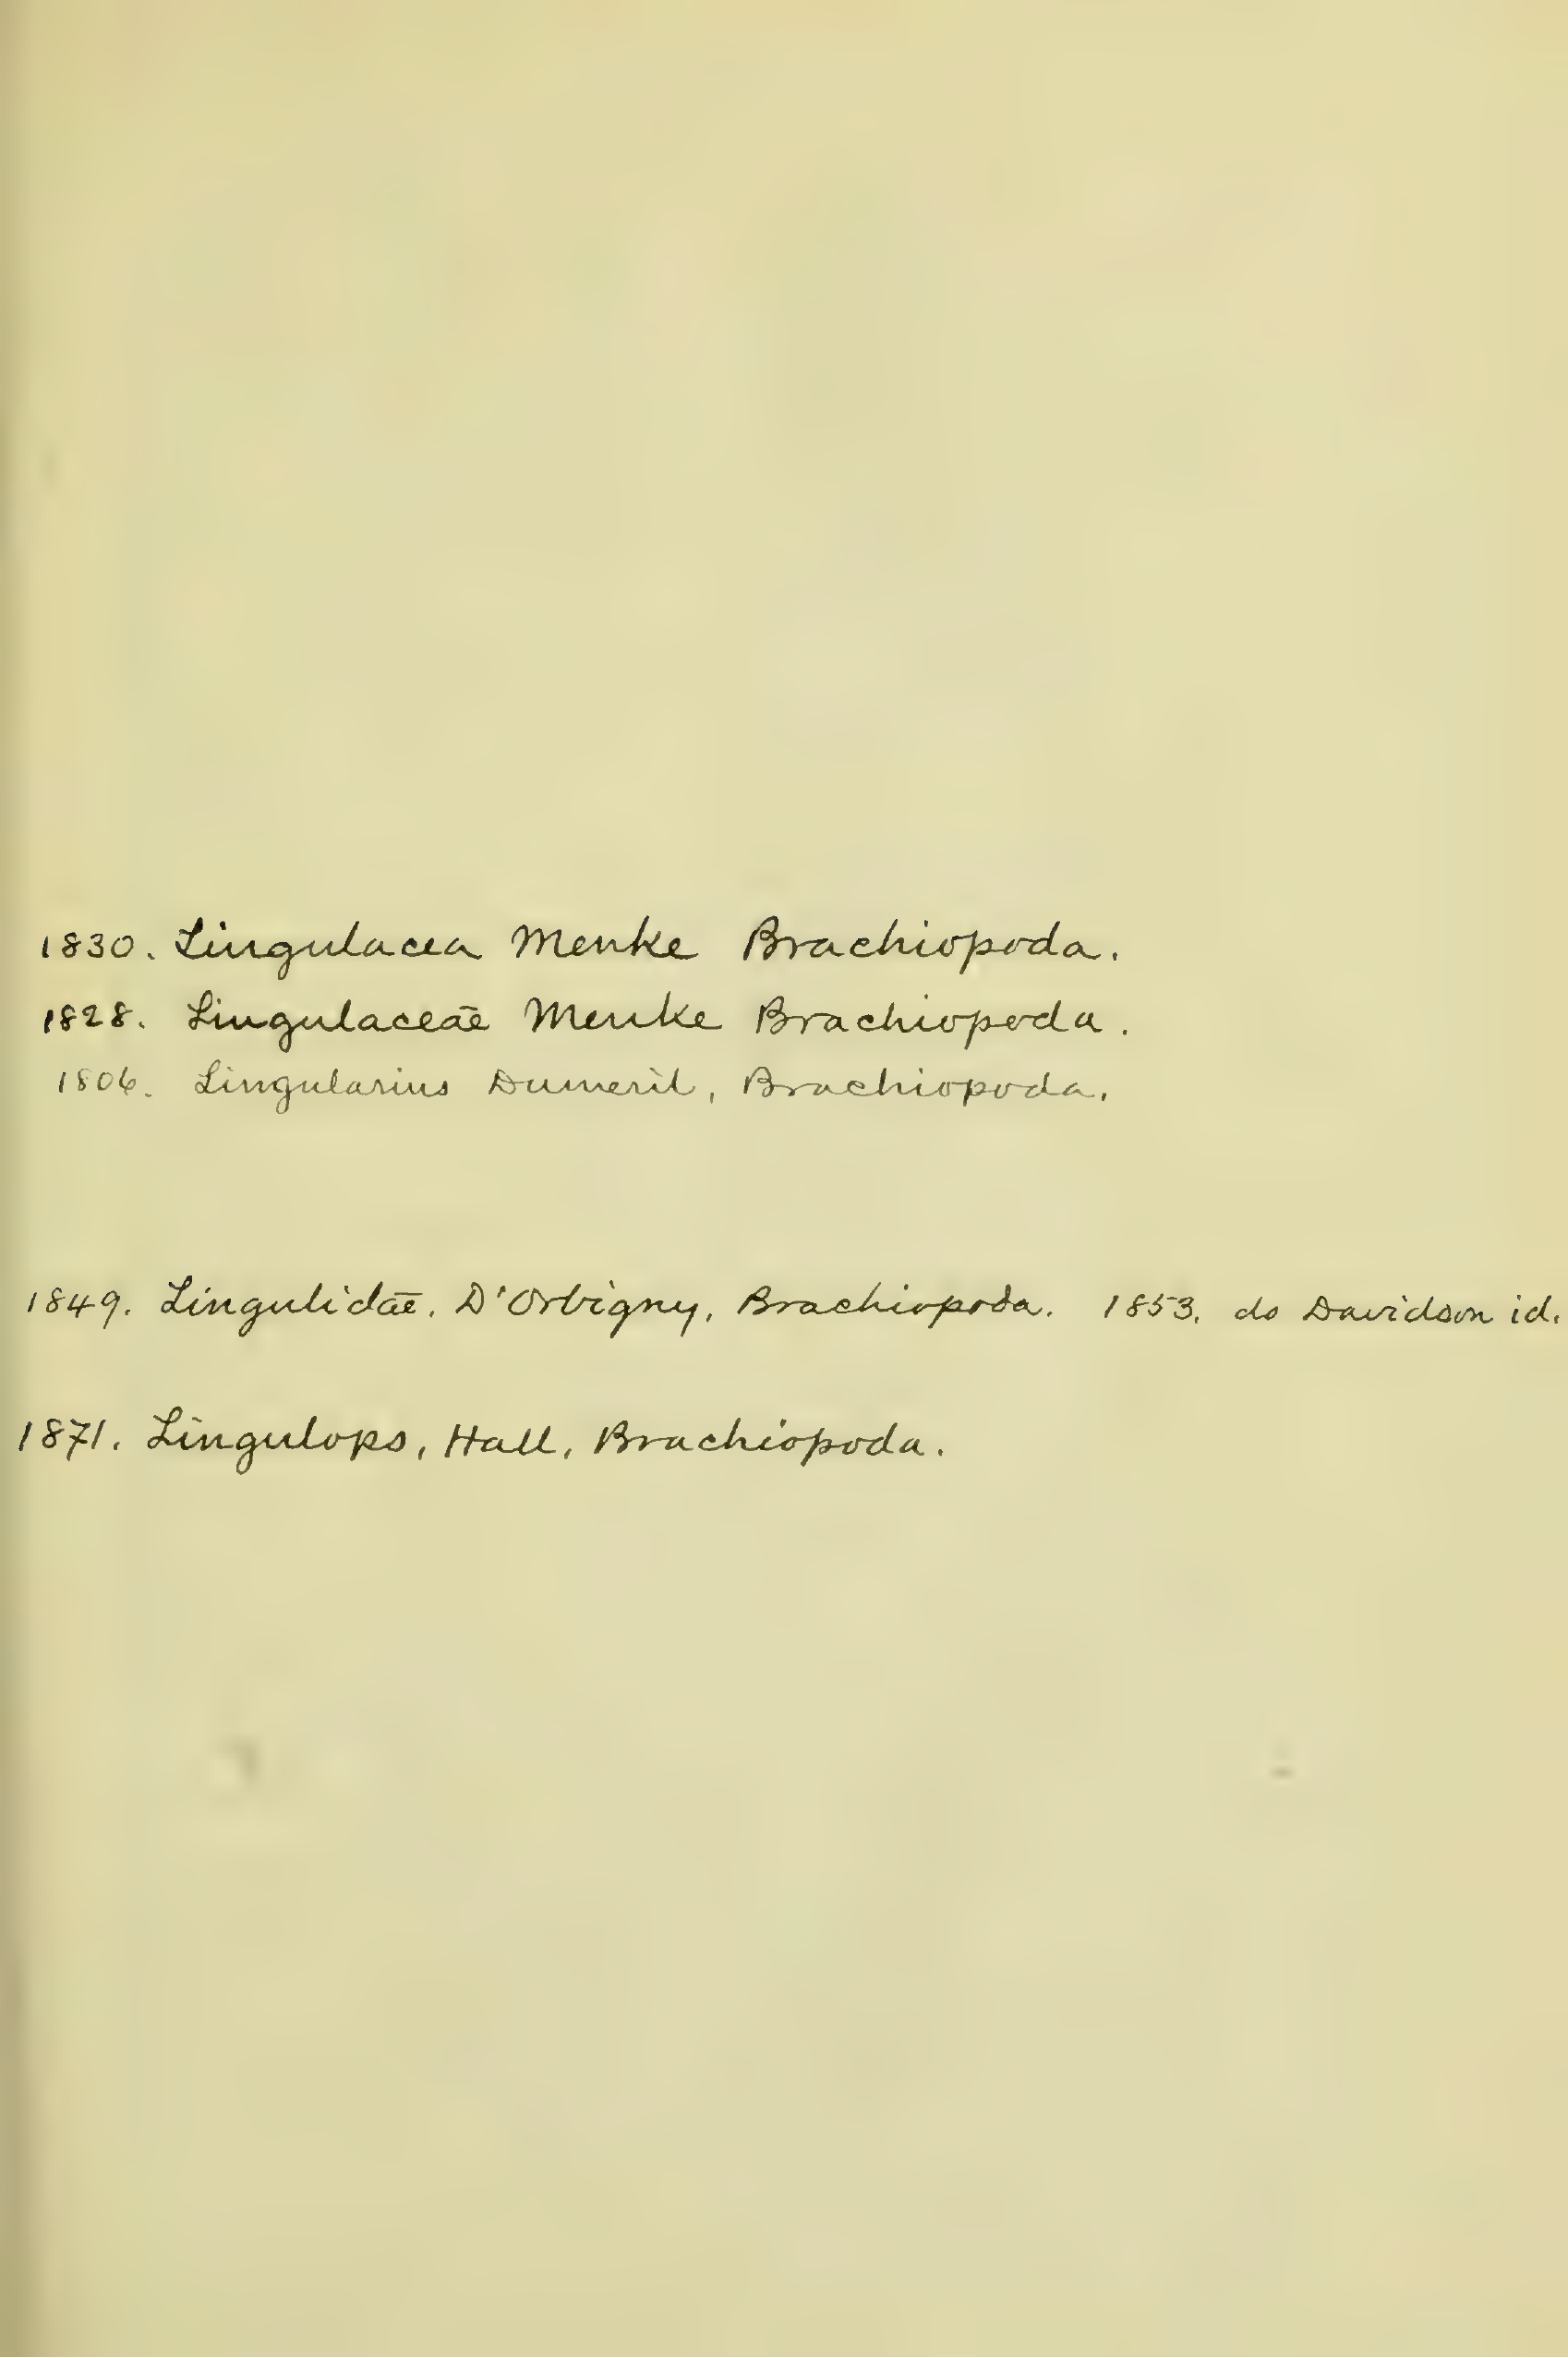 1830. Lingulacea Menke Brachiopoda.
1828. Lingulaceæ Menke Brachiopoda.
1806. Lingularius Dumeril, Brachiopoda.
1849. Lingulidæ. D'Orbigny, Brachiopoda. 1853. do Davidson id.
1871. Lingulops, Hall, Brachiopoda.